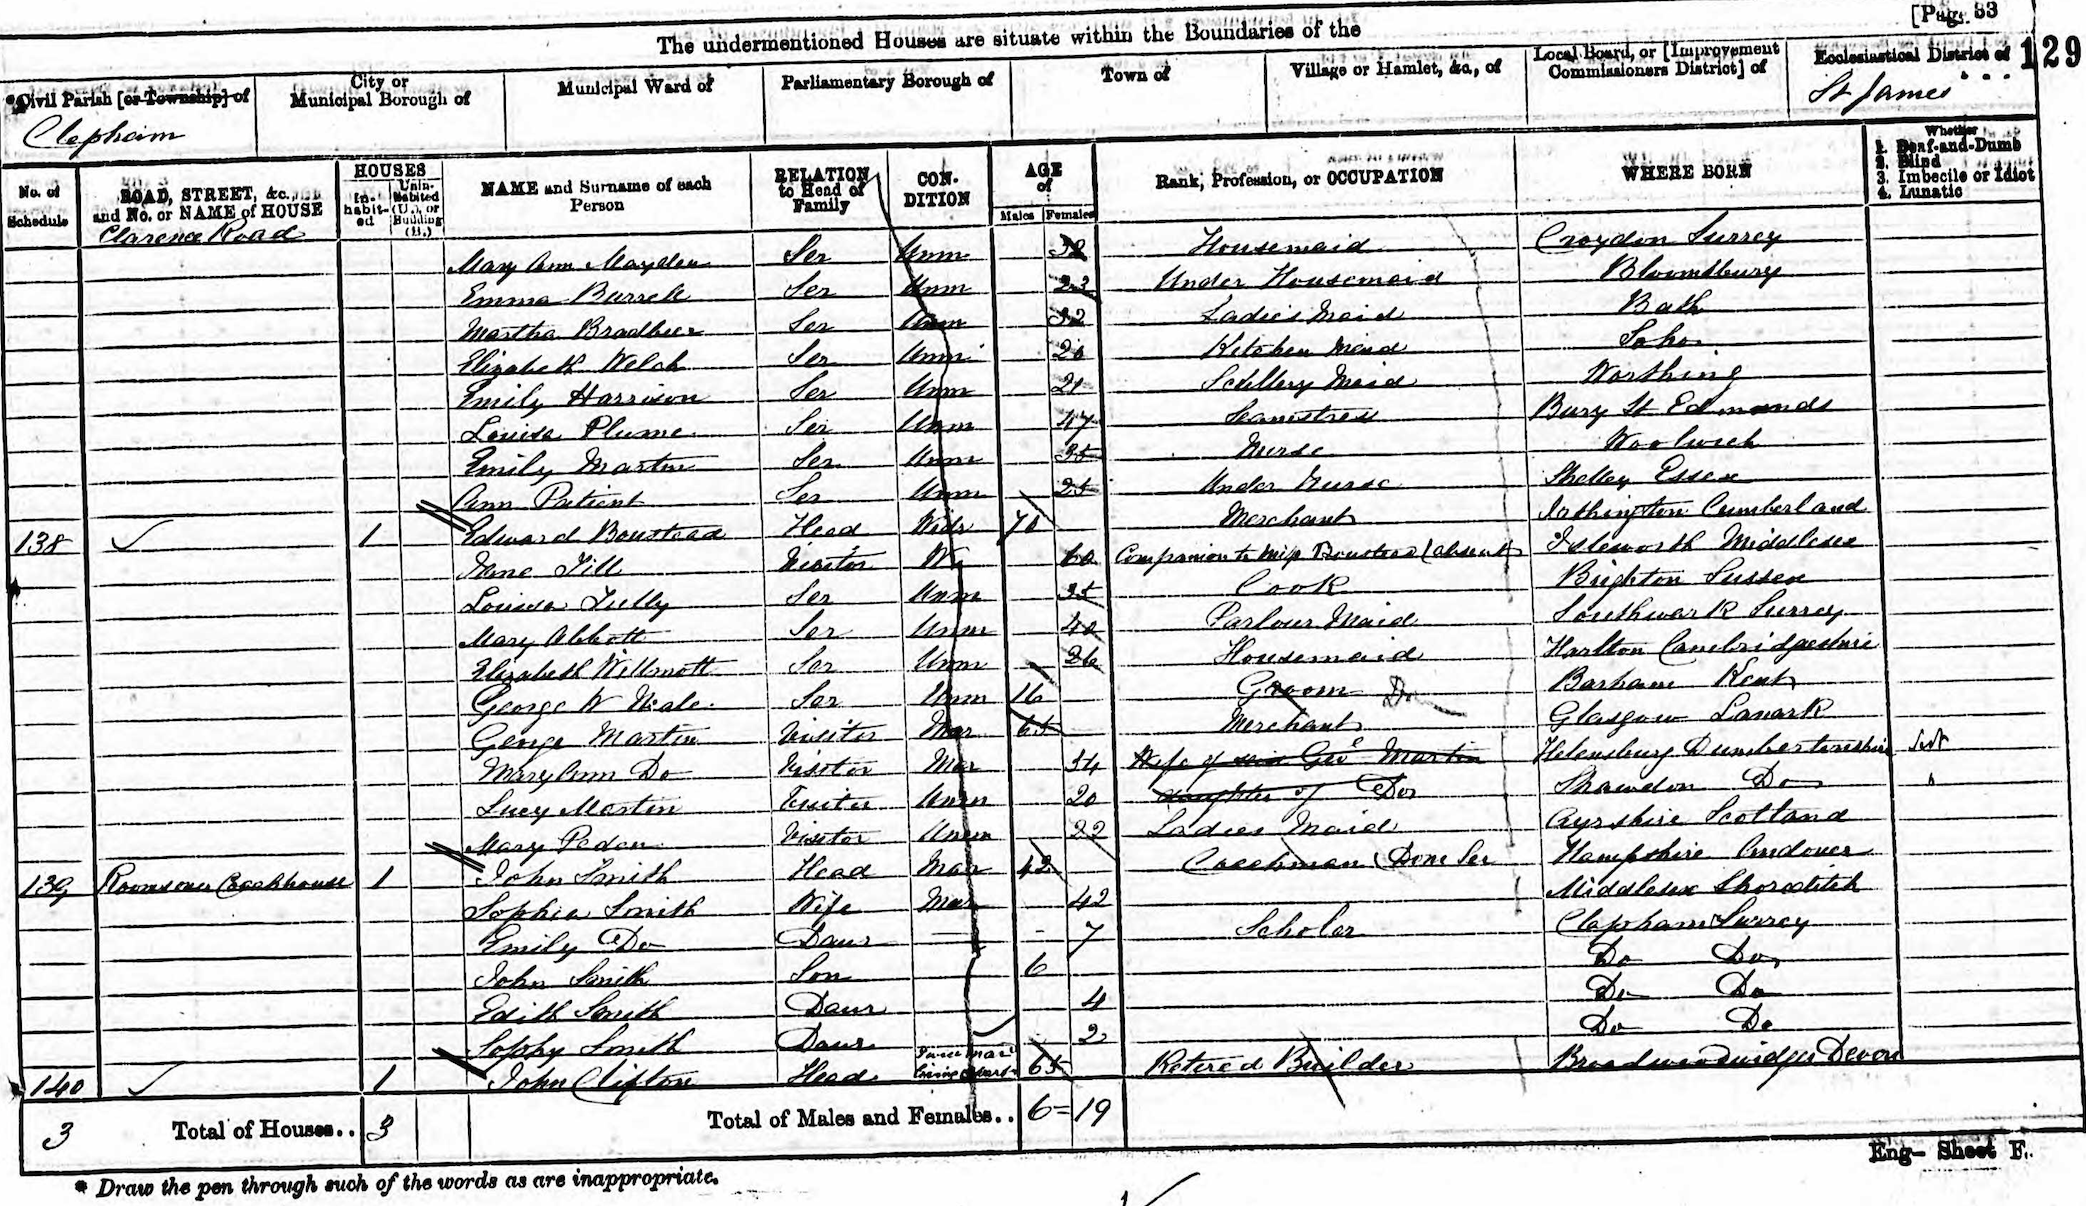 [Page 33
129
The undermentioned Houses are situate within the Boundaries of the
*Civil Parish [or Township] of
City or Municipal Borough of
Municipal Ward of
Parliamentary Borough of
Town of
Village or Hamlet, &c., of
Local Board, or [Improvement Commissioners District] of
Ecclesiastical District of
Clapham
St James
No. of Schedule
ROAD, STREET, &c., and No. or NAME of HOUSE
HOUSES
In-habit-ed
Unin-habited (U.), or Building (B.)
NAME and Surname of each Person
RELATION to Head of Family
CON-DITION
AGE of
Males
Females
Rank, Profession, or OCCUPATION
WHERE BORN
Whether
1. Deaf-and-Dumb
2. Blind
3. Imbecile or Idiot
4. Lunatic
Clarence Road
Mary Ann Mayden Ser Unm 32 Housemaid Croydon Surrey
Emma Burrell Ser Unm 23 Under Housemaid Bloomsbury
Martha Ser Unm 32 Ladies Maid Bath
Elizabeth Welch Ser Unm 20 Kitchen Maid Soho
Emily Harrison Ser Unm 21 Scullery Maid Worthing
Louisa Plume Ser Unm 47 Seamstress Bury St Edmunds
Emily Martin Ser Unm 35 Nurse Woolwich
Ann Patient Ser Unm 25 Under Nurse Shelley Essex
138 1 Edward Boustead Head Widr 70 Merchant Irthington Cumberland
Jane Till Visitor 60 Companion to Miss Boustead (absent) Isleworth Middlesex
Louisa Tully Ser Unm 35 Cook Brighton Sussex
Mary Abbott Ser Unm 40 Parlour Maid Southwark Surrey
Elizabeth Willmott Ser Unm 26 Housemaid Harlton Cambridgeshire
George W Neale Ser Unm 16 Groom Do Barham Kent
George Martin Visitor Mar 65 Merchant Glasgow Lanark
Mary Ann Do Visitor Mar 54 Wife of Geo Martin Helensburg Dumbartonshire
Lucy Martin Visitor Unm 20 daughter of Do Do
Mary Peden Visitor Unm 22 Ladies Maid Ayrshire Scotland
139 Rooms over Coachhouse 1 John Smith Head Mar 42 Coachman (Dom Ser Hampshire Andover
Sophia Smith Wife Mar 42 Middlesex Shoreditch
Emily Do Daur 7 Scholar Clapham Surrey
John Smith Son 6 Do Do
Edith Smith Daur 4 Do Do
Sophy Smith Daur 2 Do Do
140 1 John Clifton Head 65 Retired Builder Broadwoodwidger Devon
3 Total of Houses.. 3 Total of Males and Females.. 6=19
Eng— Sheet F.
* Draw the pen through such of the words as are inappropriate.